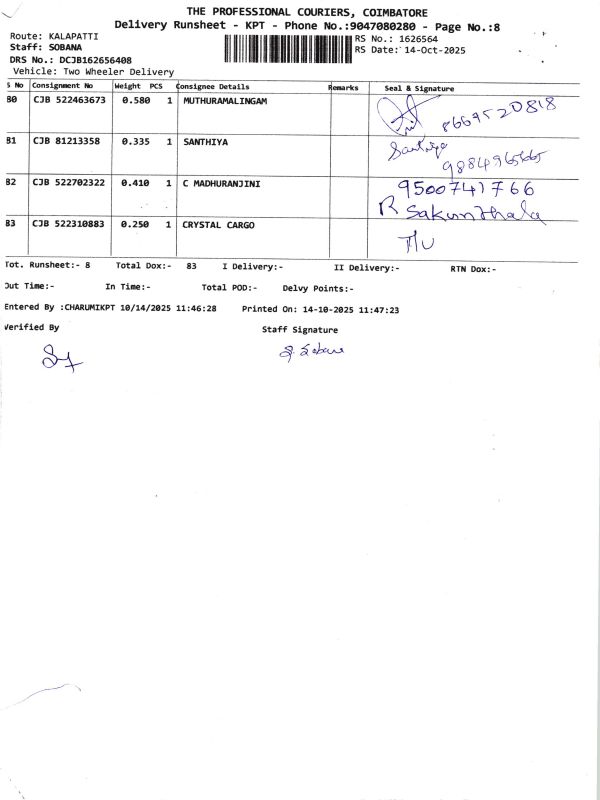 THE PROFESSIONAL COURIERS, COIMBATORE
Delivery Runsheet - KPT - Phone No.:9047080280 - Page No.:8
Route: KALAPATTI
RS No.: 1626564
Staff: SOBANA
RS Date: 14-Oct-2025
DRS No.: DCJB162656408
Vehicle: Two Wheeler Delivery
S No Consignment No Weight PCS Consignee Details Remarks Seal & Signature
80 CJB 522463673 0.580 1 MUTHURAMALINGAM 8669520818
81 CJB 81213358 0.335 1 SANTHIYA Santhiya
82 CJB 522702322 0.410 1 C MADHURANJINI 9500741766
R Sakunthala
83 CJB 522310883 0.250 1 CRYSTAL CARGO
Tot. Runsheet:- 8 Total Dox:- 83 I Delivery:- II Delivery:- RTN Dox:-
Out Time:- In Time:- Total POD:- Delvy Points:-
Entered By :CHARUMIKPT 10/14/2025 11:46:28 Printed On: 14-10-2025 11:47:23
Verified By Staff Signature